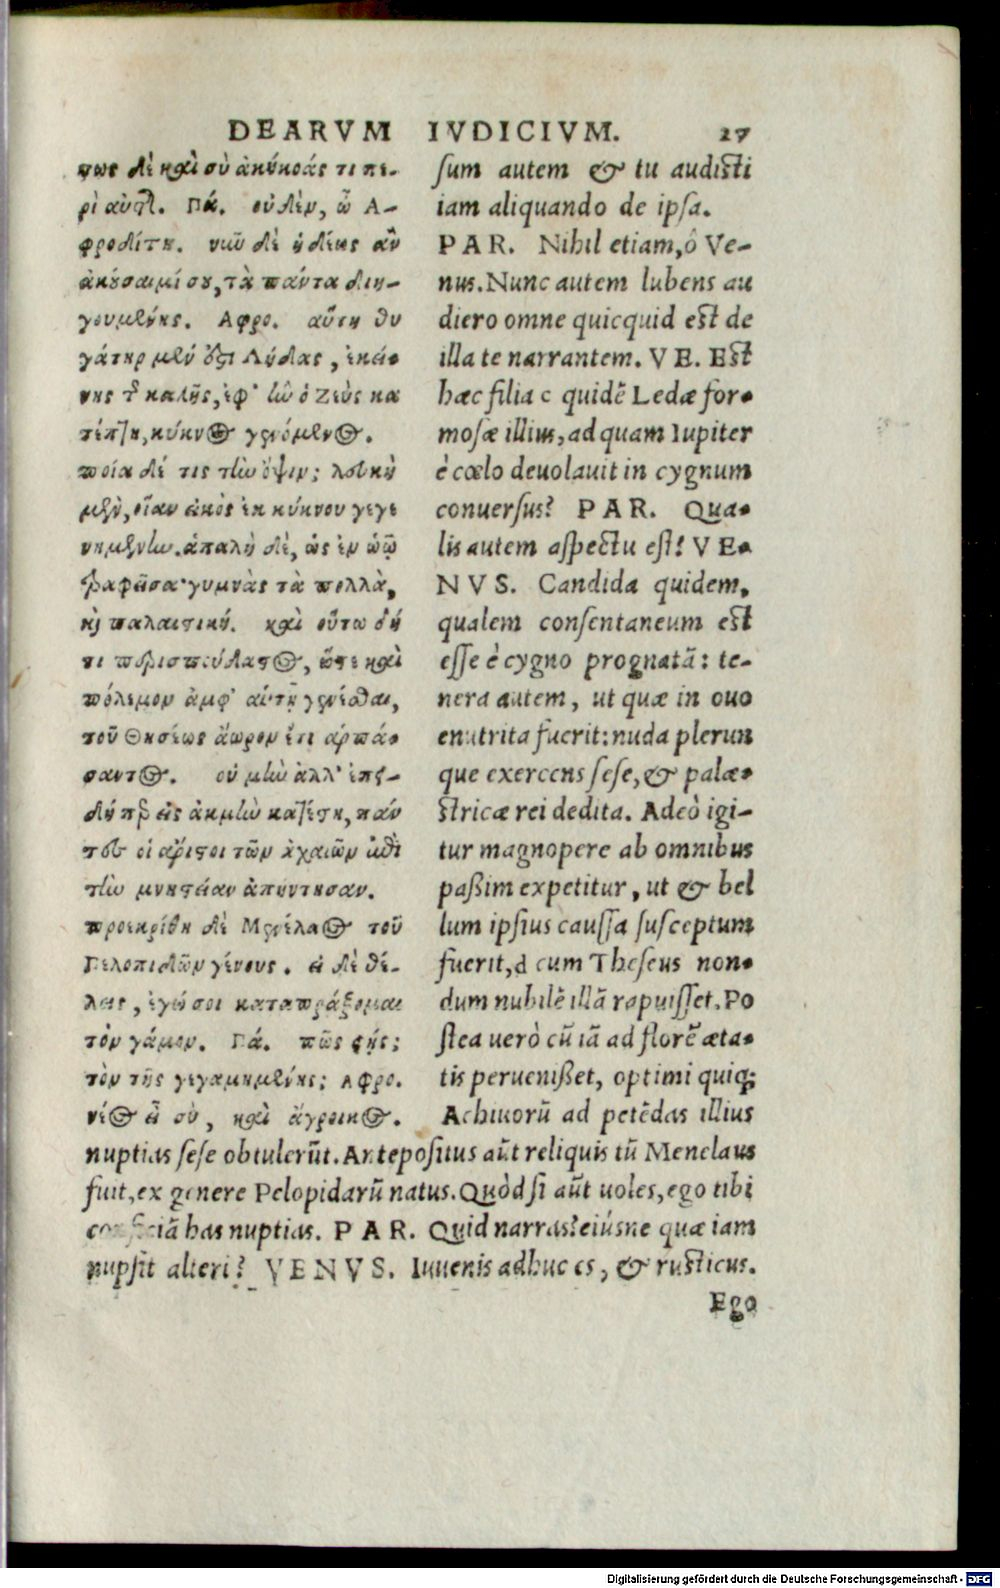 DEARVM IVDICIVM. 27
πως δὲ καὶ σὺ ἀκήκοάς τι πε-
ρὶ αὐτῆς. Πά. οὐδὲν, ὦ Α-
φροδίτη. νῦν δὲ ἡδέως ἂν
ἀκούσαιμί σου, τὰ πάντα διη-
γουμένης. Αφρο. αὕτη θυ
γάτηρ μέν ἐστι Λήδας, ἐκεί-
νης τῆς καλῆς, ἐφ' ἣν ὁ Ζεὺς κα
τέπτη, κύκνος γενόμενος.
ποία δέ τις τὴν ὄψιν; λευκὴ
μὲν, οἵαν εἰκὸς ἐκ κύκνου γεγε
νημένην. ἁπαλὴ δὲ, ὡς ἐν ὠῷ
τραφεῖσα· γυμνὰς τὰ πολλὰ,
καὶ παλαιστική. καὶ οὕτω δή
τι περισπούδαστος, ὥστε καὶ
πόλεμον ἀμφ' αὐτῇ γενέσθαι,
τοῦ Θησέως ἄωρον ἔτι ἁρπά-
σαντος. οὐ μὴν ἀλλ' ἐπει-
δήπερ εἰς ἀκμὴν κατέστη, πάν
τες οἱ ἄριστοι τῶν ἀχαιῶν ἐπὶ
τὴν μνηστείαν ἀπήντησαν.
προεκρίθη δὲ Μενέλαος τοῦ
Πελοπιδῶν γένους. εἰ δὲ θέ-
λεις, ἐγώ σοι καταπράξομαι
τὸν γάμον. Πά. πῶς φῄς;
τὸν τῆς γεγαμημένης; Αφρο.
νέος εἶ σὺ, καὶ ἄγροικος.
sum autem & tu audisti
iam aliquando de ipsa.
PAR. Nihil etiam, ô Ve-
nus. Nunc autem lubens au
diero omne quicquid est de
illa te narrantem. VE. Est
hæc filia c quidē Ledæ for-
mosæ illius, ad quam Iupiter
è cœlo deuolauit in cygnum
conuersus? PAR. Qua-
lis autem aspectu est? VE-
NVS. Candida quidem,
qualem consentaneum est
esse è cygno prognatā: te-
nera autem, ut quæ in ouo
enutrita fuerit: nuda plerun
que exercens sese, & palæ-
stricæ rei dedita. Adeò igi-
tur magnopere ab omnibus
paßim expetitur, ut & bel
lum ipsius caussa susceptum
fuerit, d cum Theseus non-
dum nubilē illā rapuisset. Po
stea uerò cū iā ad florē æta-
tis peruenißet, optimi quiq;
Achiuorū ad petēdas illius
nuptias sese obtulerūt. Antepositus aūt reliquis tū Menelaus
fuit, ex genere Pelopidarū natus. Quòd si aūt uoles, ego tibi
conficiā has nuptias. PAR. Quid narras? eiúsne quæ iam
nupsit alteri? VENVS. Iuuenis adhuc es, & rusticus.
Ego
Digitalisierung gefördert durch die Deutsche Forschungsgemeinschaft - DFG